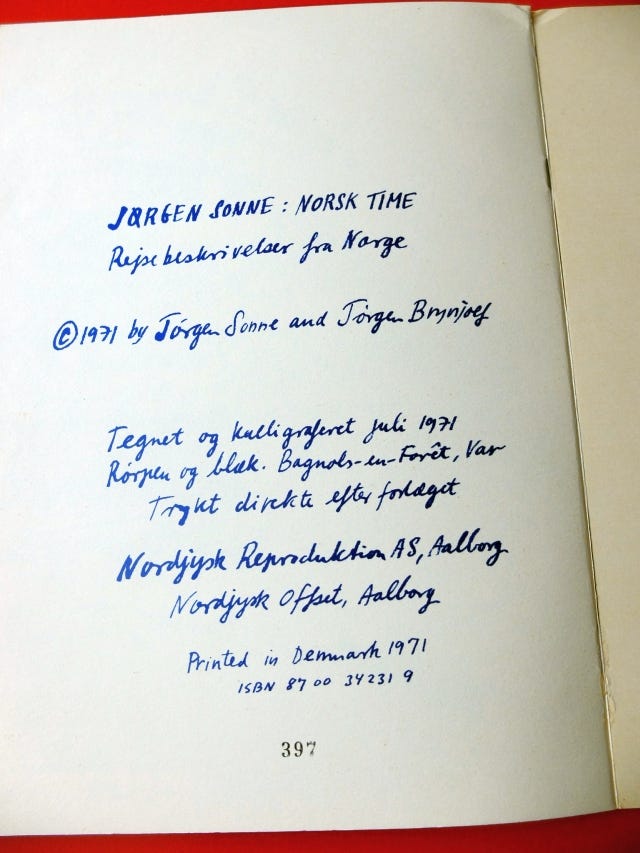 JØRGEN SONNE : NORSK TIME
Rejsebeskrivelser fra Norge
© 1971 by Jørgen Sonne and Jørgen Brynjolf
Tegnet og kalligraferet juli 1971
Rørpen og blæk. Bagnols-en-Forêt, Var
Trykt direkte efter forlæget
Nordjysk Reproduktion AS, Aalborg
Nordjysk Offset, Aalborg
Printed in Denmark 1971
ISBN 87 00 34231 9
397